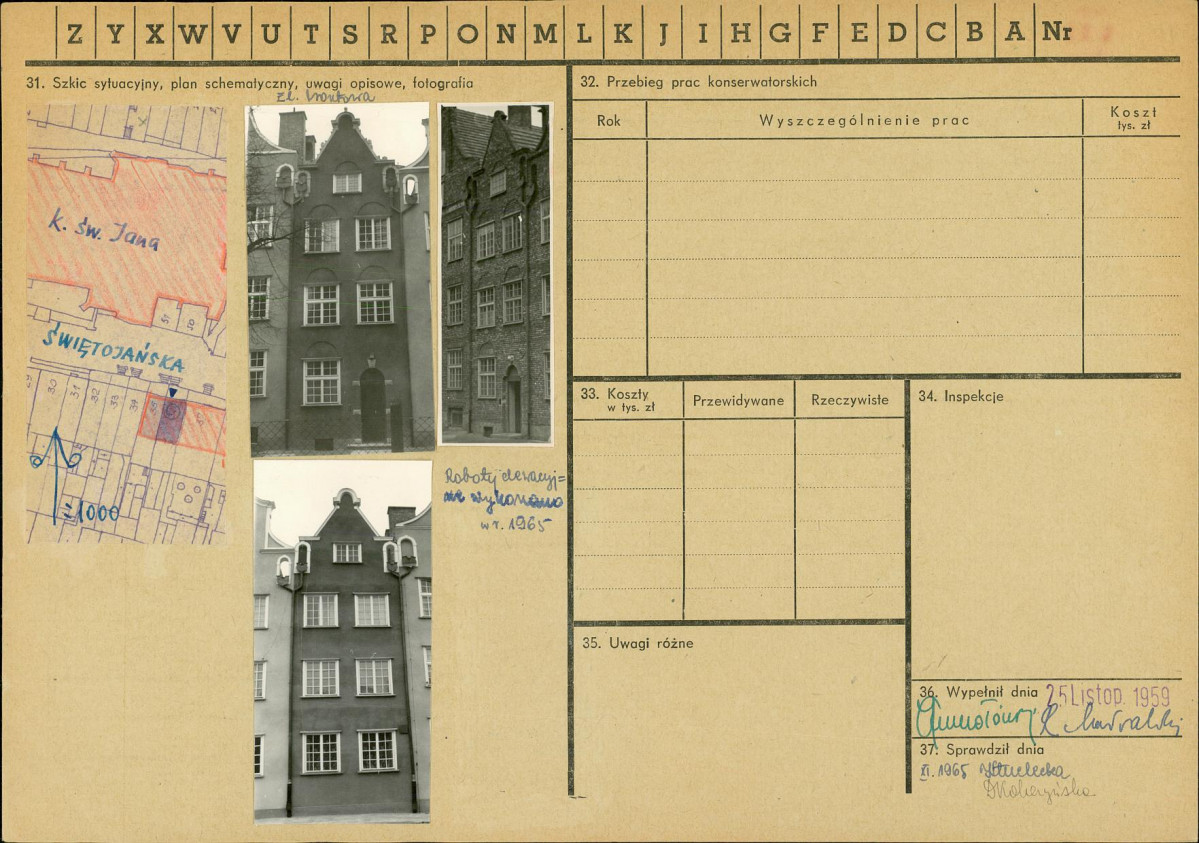 Z Y X W V U T S R P O N M L K J I H G F E D C B A Nr
31. Szkic sytuacyjny, plan schematyczny, uwagi opisowe, fotografia
k. św. Jana
51
50
ŚWIĘTOJAŃSKA
30
31
32
33
34
1:1000
Roboty elewacyj=
ne wykonano
w r. 1965
32. Przebieg prac konserwatorskich
Rok
Wyszczególnienie prac
Koszt
tys. zł
33. Koszty
w tys. zł
Przewidywane
Rzeczywiste
34. Inspekcje
35. Uwagi różne
36. Wypełnił dnia 25 Listop. 1959
37. Sprawdził dnia
XI. 1965